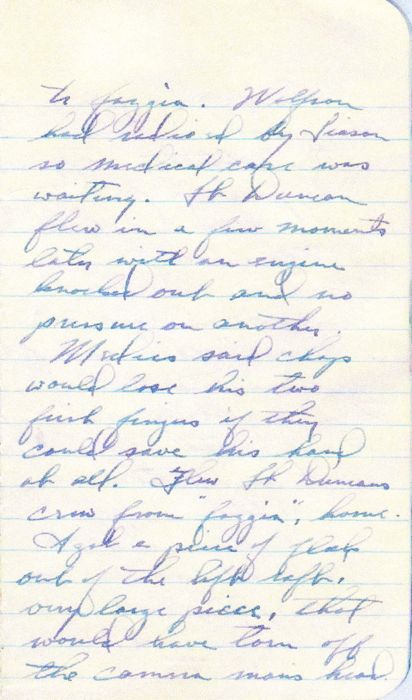 to foggia. Wolfson
had radioed by liason
so medical care was
waiting. Lt Duncan
flew in a few moments
later with an engine
knocked out and no
pressure on another.
Medics said chaps
would lose his two
first fingers if they
could save his hand
at all. Flew Lt Duncans
crew from "foggia", home.
I got a piece of flak
out of the left raft,
very large piece, that
would have torn off
the camera mans head.